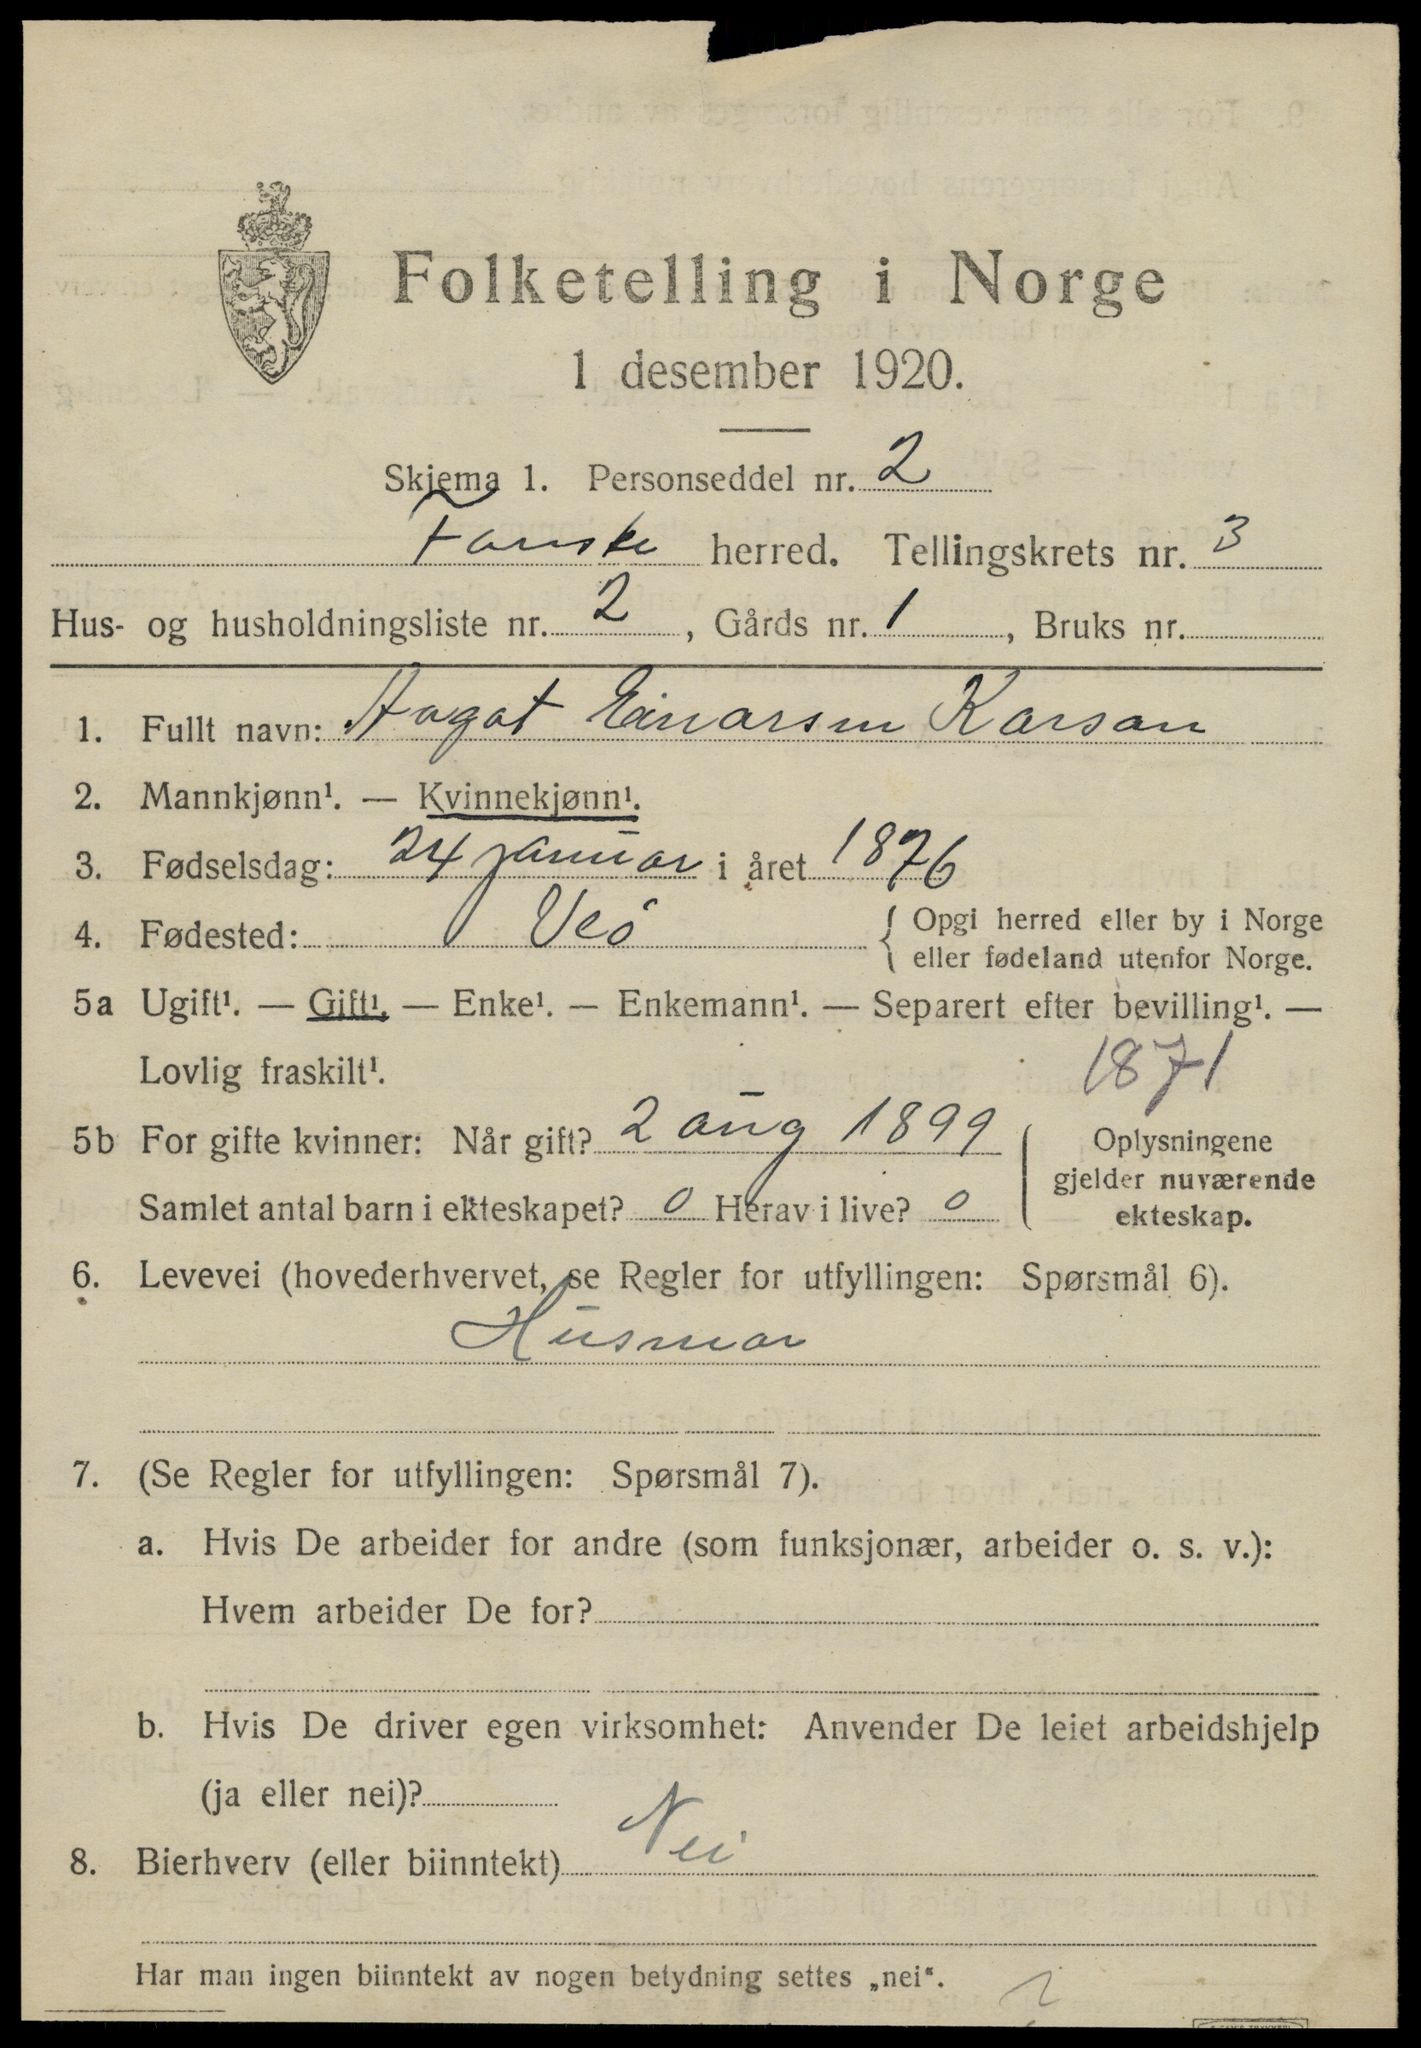 Folketelling i Norge
1 desember 1920.
Skjema 1. Personseddel nr. 2
herred. Tellingskrets nr. 3
Hus- og husholdningsliste nr. 2, Gårds nr. 1, Bruks nr.
1. Fullt navn: Aagot Einarsen Karsan
2. Mannkjønn¹. — Kvinnekjønn¹.
3. Fødselsdag: 24 januar i året 1876
4. Fødested: Veö { Opgi herred eller by i Norge
eller fødeland utenfor Norge.
5a Ugift¹. — Gift¹. — Enke¹. — Enkemann¹. — Separert efter bevilling¹. —
Lovlig fraskilt¹. 1871
5b For gifte kvinner: Når gift? 2 aug 1899
Samlet antal barn i ekteskapet? 0 Herav i live? 0
( Oplysningene
gjelder nuværende
ekteskap.
6. Levevei (hovederhvervet, se Regler for utfyllingen: Spørsmål 6).
Husmor
7. (Se Regler for utfyllingen: Spørsmål 7).
a. Hvis De arbeider for andre (som funksjonær, arbeider o. s. v.):
Hvem arbeider De for?
b. Hvis De driver egen virksomhet: Anvender De leiet arbeidshjelp
(ja eller nei)?
8. Bierhverv (eller biinntekt) Nei
Har man ingen biinntekt av nogen betydning settes „nei“.